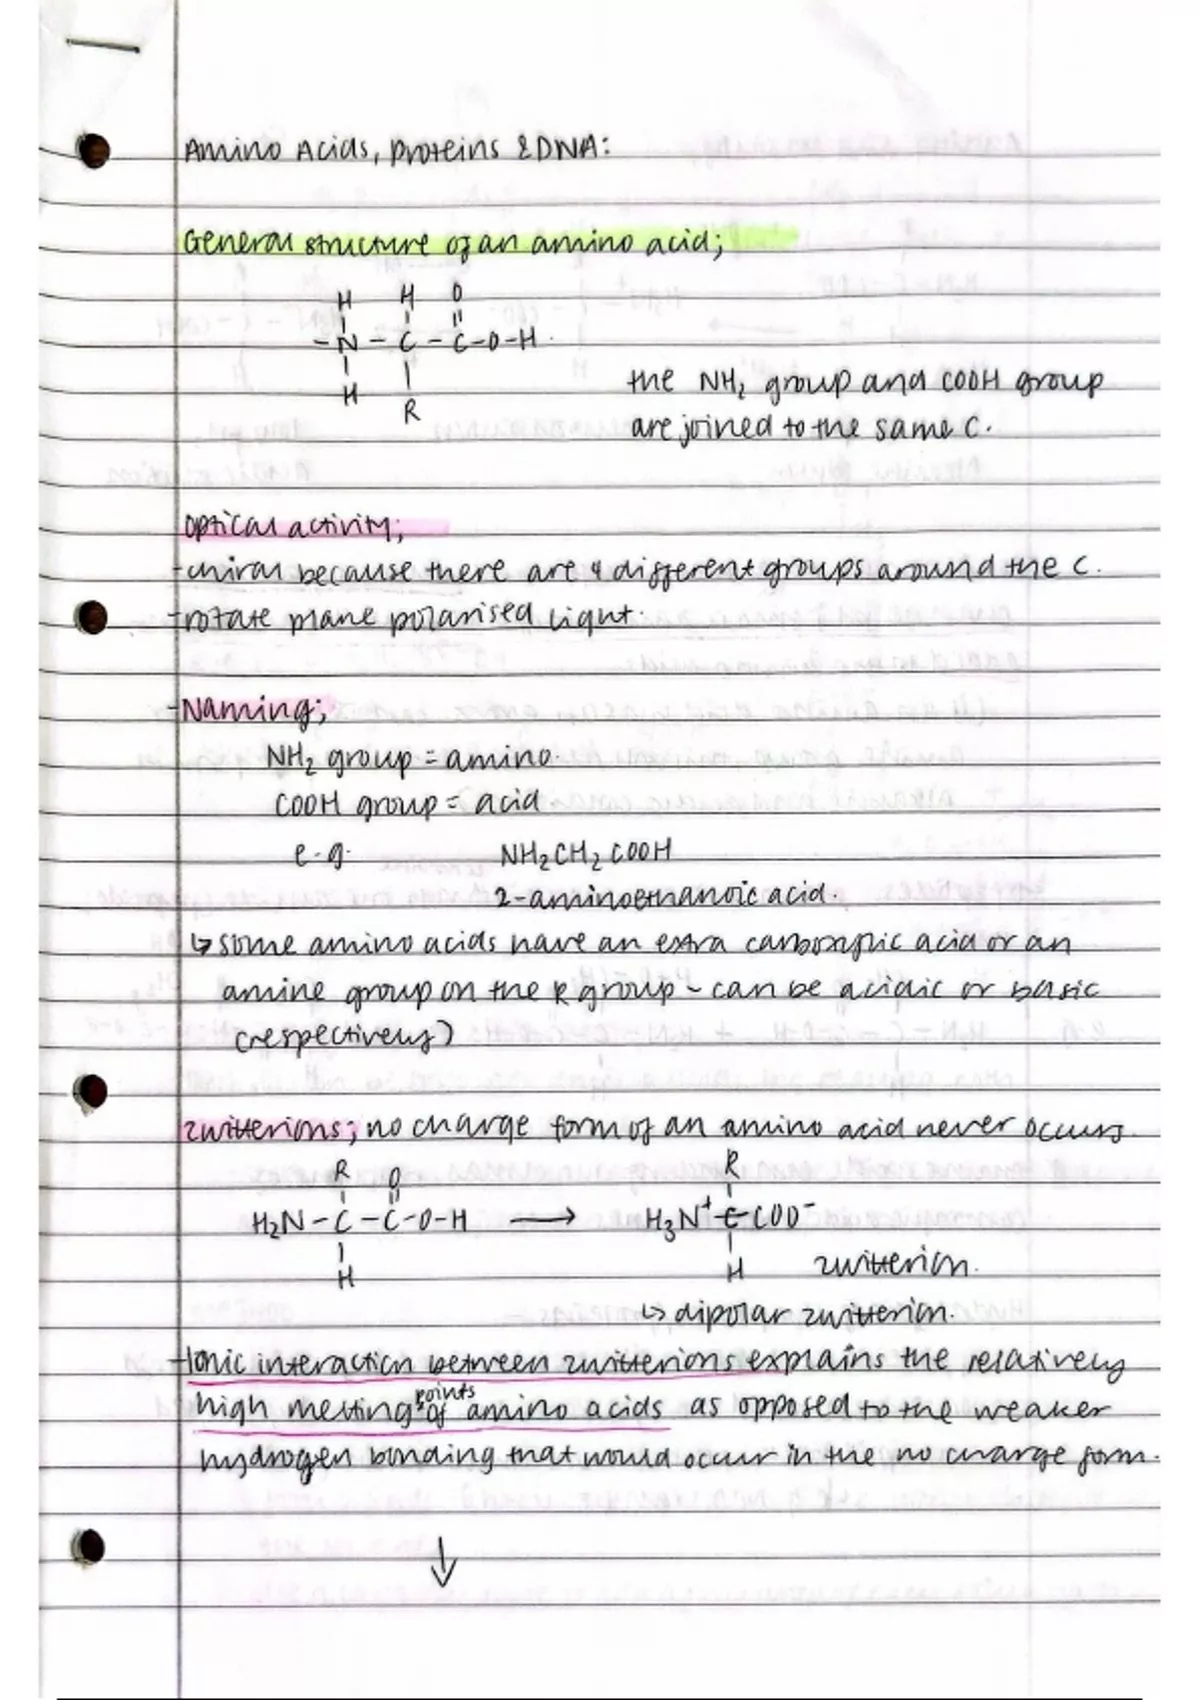 Amino Acids, proteins & DNA:
General structure of an amino acid;
H H O
- N - C - C - O - H
H R
the NH₂ group and COOH group
are joined to the same C.
optical activity;
- chiral because there are 4 different groups around the C.
- rotate plane polarised light.
- Naming;
NH₂ group = amino.
COOH group = acid
e.g. NH₂CH₂COOH
2-aminoethanoic acid.
↳ some amino acids have an extra carboxylic acid or an
amine group on the R group - can be acidic or basic
(respectively)
zwitterions; no charge form of an amino acid never occurs.
R O R
H₂N - C - C - O - H → H₃N⁺ - C - COO⁻
H H zwitterion.
↳ dipolar zwitterion.
- Ionic interaction between zwitterions explains the relatively
high melting points of amino acids as opposed to the weaker
hydrogen bonding that would occur in the no charge form.
↓